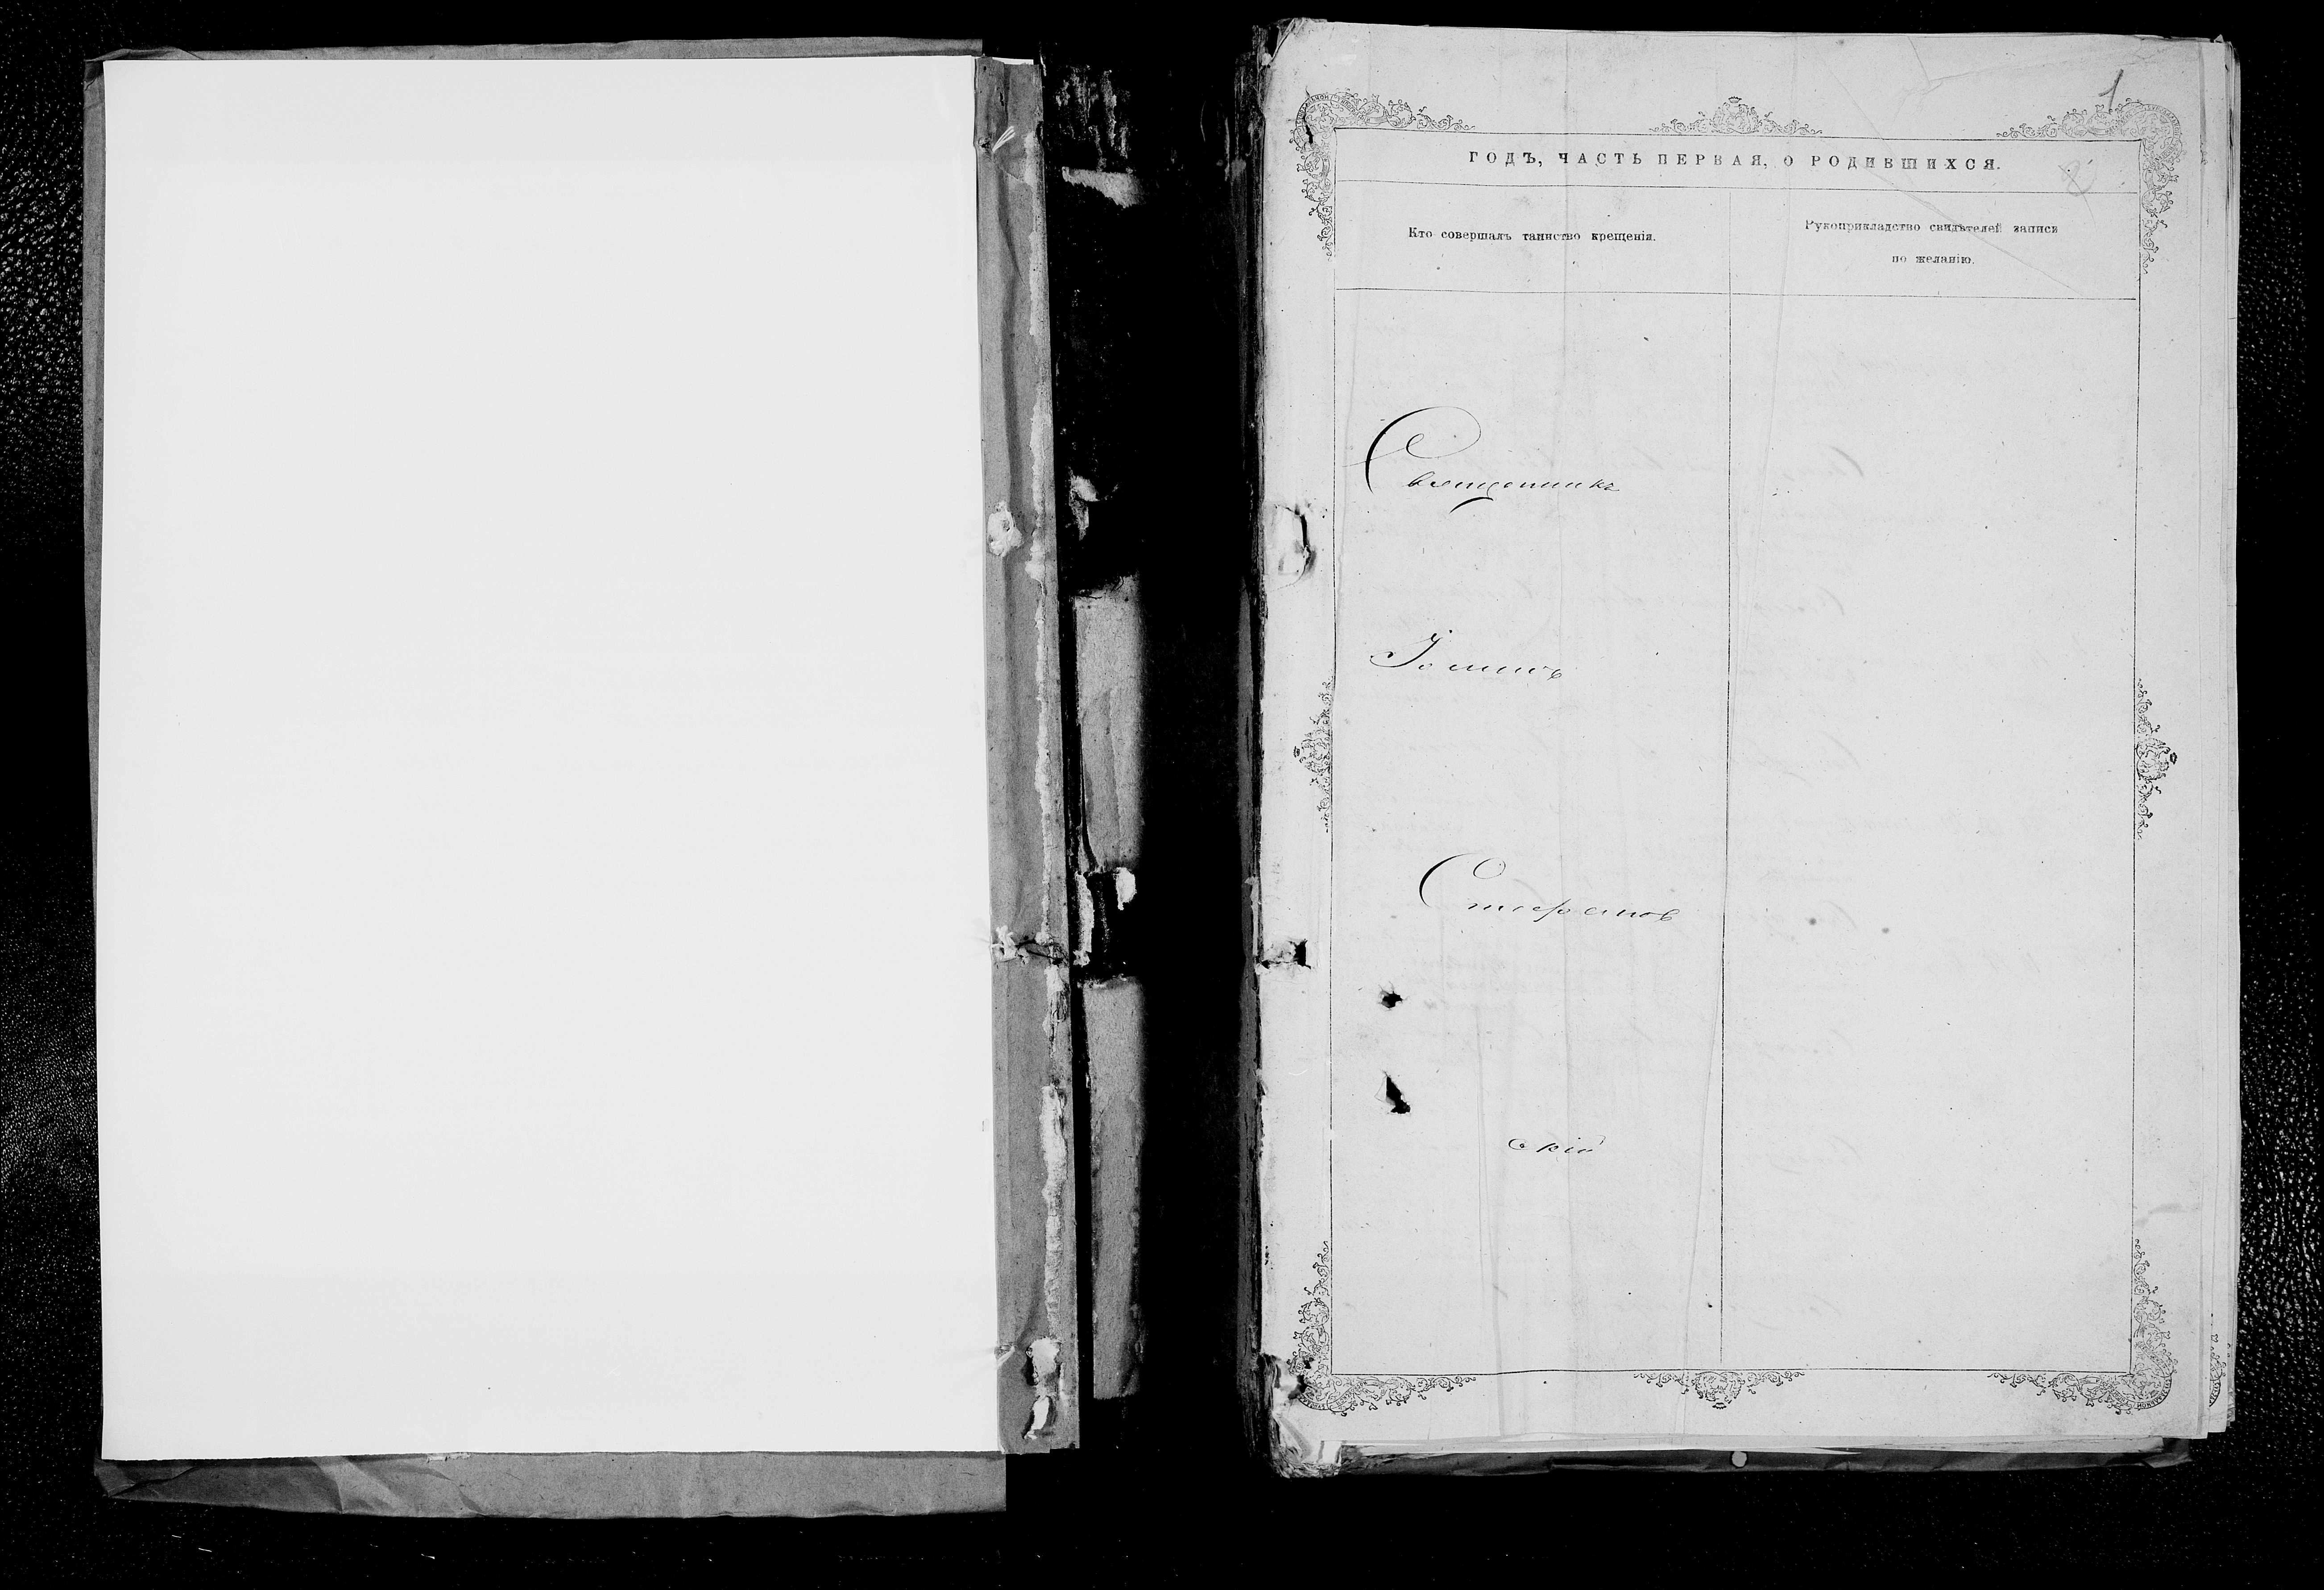 1
ГОДЪ, ЧАСТЬ ПЕРВАЯ, О РОДИВШИХСЯ.
Кто совершалъ таинство крещенія.
Рукоприкладство свидѣтелей записи
по желанію.
Священникъ
Іоаннъ
Стефанов
скій